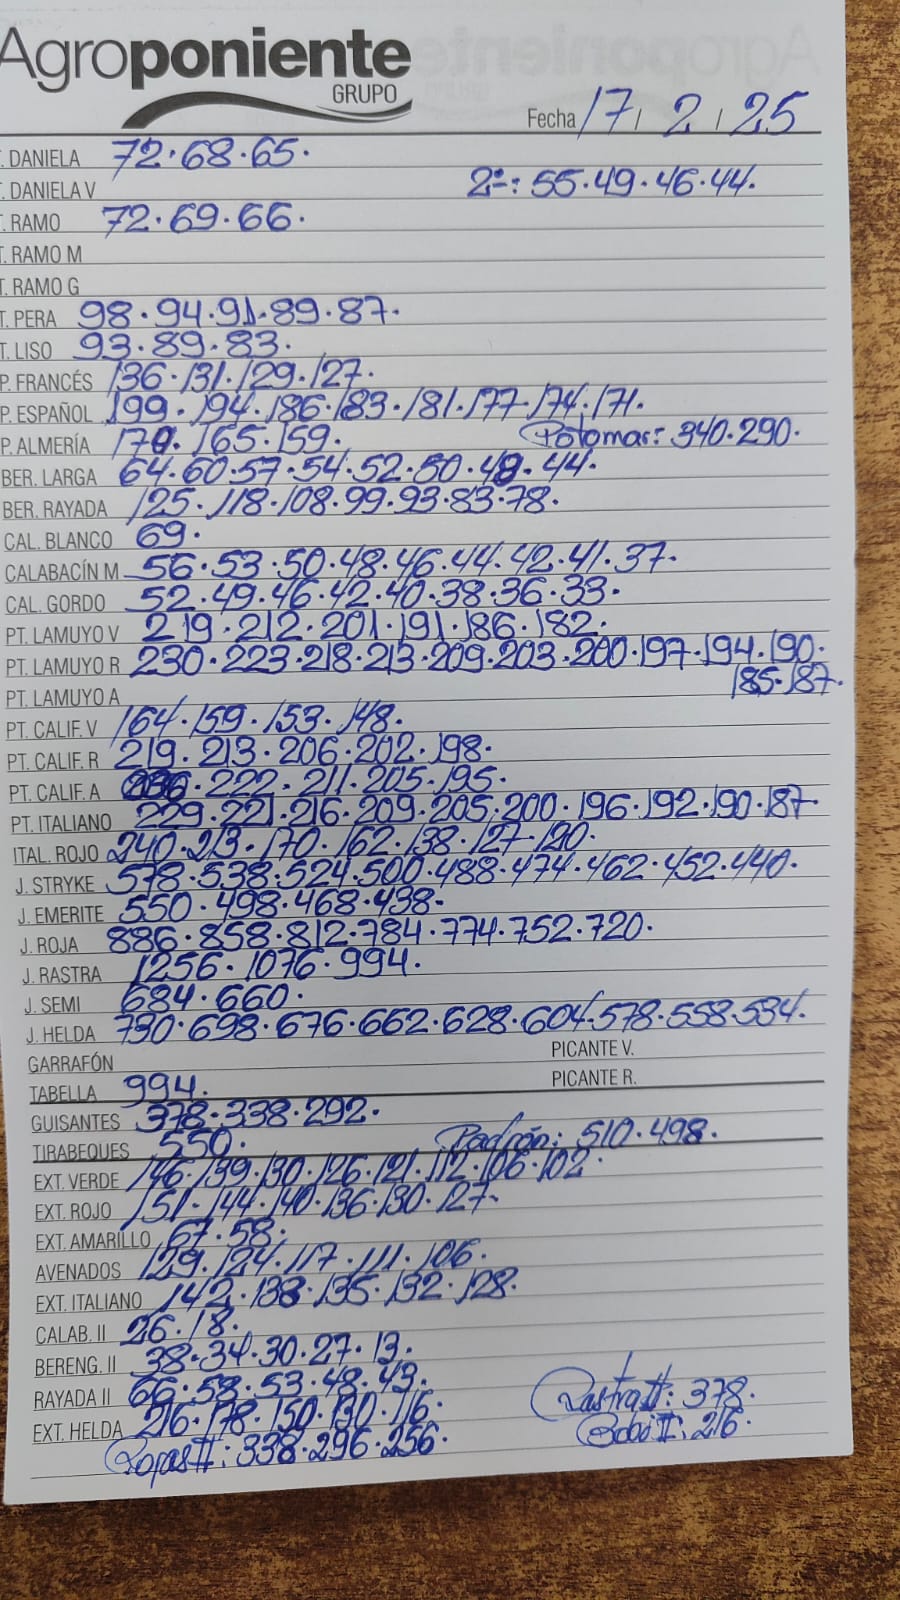 Agroponiente
GRUPO
Fecha 17 / 2 / 25
T. DANIELA 72·68·65·
T. DANELA V 2ª: 55·49·46·44·
T. RAMO 72·69·66·
T. RAMO M
T. RAMO G
T. PERA 98·94·91·89·87·
T. LISO 93·89·83·
P. FRANCÉS 136·131·129·127·
P. ESPAÑOL 199·194·186·183·181·177·174·171·
P. ALMERÍA 170·165·159· Potomar: 340·290·
BER. LARGA 64·60·57·54·52·50·48·44·
BER. RAYADA 125·118·108·99·93·83·78·
CAL. BLANCO 69·
CALABACÍN M 56·53·50·48·46·44·42·41·37·
CAL. GORDO 52·49·46·42·40·38·36·33·
PT. LAMUYO V 219·212·201·191·186·182·
PT. LAMUYO R 230·223·218·213·209·203·200·197·194·190·
185·187·
PT. LAMUYO A
PT. CALIF. V 164·159·153·148·
PT. CALIF. R 219·213·206·202·198·
PT. CALIF. A ·222·211·205·195·
PT. ITALIANO 229·221·216·209·205·200·196·192·190·187·
ITAL. ROJO 240·213·170·162·138·127·120·
J. STRYKE 578·538·524·500·488·474·462·452·440·
J. EMERITE 550·498·468·438·
J. ROJA 886·858·812·784·774·752·720·
J. RASTRA 1256·1076·994·
J. SEMI 684·660·
J. HELDA 730·698·676·662·628·604·578·558·534·
GARRAFÓN PICANTE V.
TABELLA 994· PICANTE R.
GUISANTES 378·338·292·
TIRABEQUES 550· Padrón: 510·498·
EXT. VERDE 146·139·130·126·121·112·106·102·
EXT. ROJO 151·144·140·136·130·127·
EXT. AMARILLO 67·58·
AVENADOS 129·124·117·111·106·
EXT. ITALIANO 142·138·135·132·128·
CALAB. II 26·18·
BERENG. II 38·34·30·27·13·
RAYADA II 66·58·53·48·43· Rastra II: 378·
EXT. HELDA 216·178·150·130·116· Bobi II: 216·
Rojas II: 338·296·256·